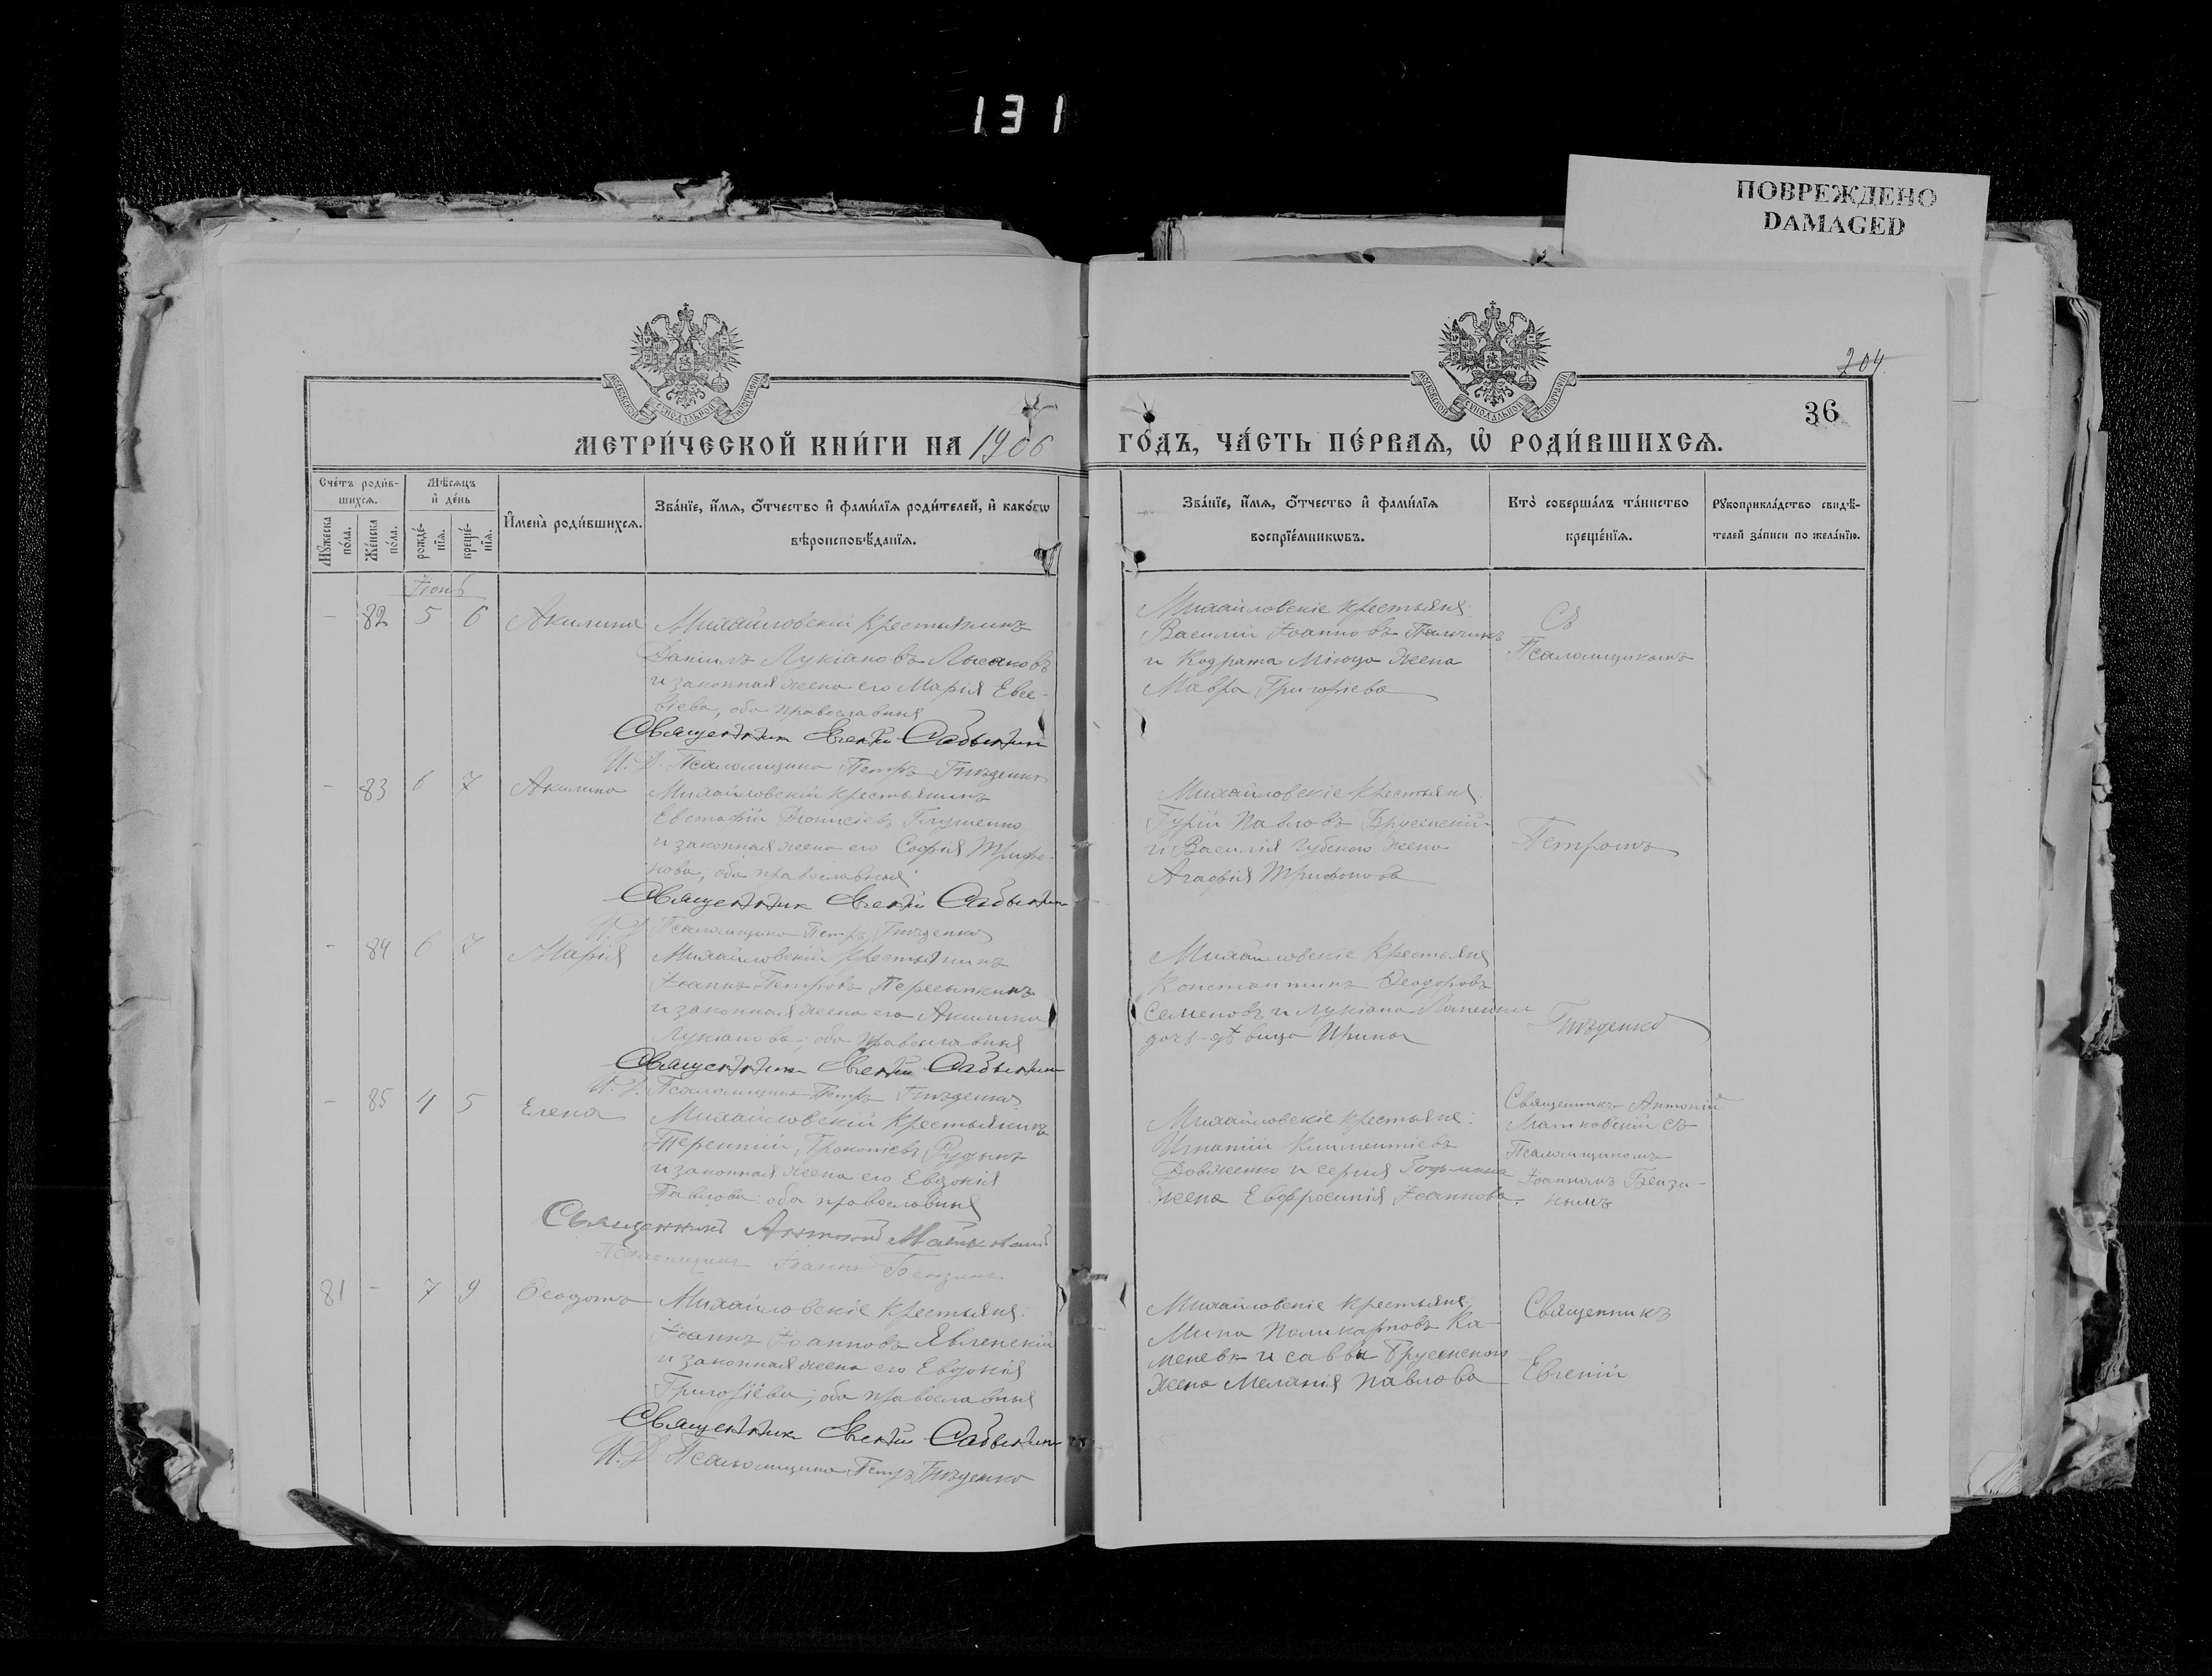 131
ПОВРЕЖДЕНО
DAMAGED
204
36
МОСКОВСКОЙ СѴНОДАЛЬНОЙ ТИПОГРАФІИ
МОСКОВСКОЙ СѴНОДАЛЬНОЙ ТИПОГРАФІИ
МЕТРИ́ЧЕСКОЙ КНИ́ГИ НА 1906
ГО́ДЪ, ЧА́СТЬ ПЕ́РВАѦ, Ѡ҆ РОДИ́ВШИХСѦ.
Сче́тъ роди́в-
шихсѧ.
Мꙋ́жеска по́ла.
Же́нска по́ла.
Мѣ́сѧцъ
и҆ де́нь
рожде́-
нїѧ.
креще́-
нїѧ.
И҆мена̀ роди́вшихсѧ.
Зва́нїе, и҆́мѧ, ѻ҆́тчество и҆ фами́лїѧ роди́телей, и҆ како́гѡ
вѣроисповѣ́данїѧ.
Зва́нїе, и҆́мѧ, ѻ҆́тчество и҆ фами́лїѧ
воспрїе́мникѡвъ.
Кто̀ соверша́лъ та́инство
креще́нїѧ.
Рꙋкоприкла́дство свидѣ́-
телей за́писи по жела́нїю.
Іюнь
- 82 5 6 Акилина
Михайловскій крестьянинъ
Даніилъ Лукіановъ
и законная жена его Марія Евсе-
віева, оба православныя
Священник Евгений
И. Д. Псаломщика Петръ Гнѣденко
Михайловскіе крестьяне:
Василій Іоанновъ
и Кодрата жена
Мавра Григоріева
Съ
Псаломщикомъ
- 83 6 7 Акилина
Михайловскій крестьянинъ
Евстафій Діонисіевъ Глущенко
и законная жена его Софія Трифо-
нова, оба православныя
Священник Евгений
И. Д. Псаломщика Петръ Гнѣденко
Михайловскіе крестьяне:
Гурій Павловъ Брусенскій
и Василія Губскаго жена
Агафія Трифонова
Петромъ
- 84 6 7 Марія
Михайловскій крестьянинъ
Іоаннъ Петровъ Пересыпкинъ
и законная жена его Акилина
Лукіанова, оба православныя
Священник Евгений
И. Д. Псаломщика Петръ Гнѣденко
Михайловскіе крестьяне
Константинъ Ѳеодоровъ
Семеновъ и Лукіана
дочь-дѣвица Ирина
Гнѣденко
- 85 4 5 Елена
Михайловскій крестьянинъ
Терентій Прокопіевъ Рудыкъ
и законная жена его Евдокія
Павлова оба православныя
Священникъ Антоній
Псаломщикъ Іоаннъ
Михайловскіе крестьяне:
Игнатій Климентіевъ
Довженко и Сергія
жена Евфросинія Іоаннова.
Священникъ Антоній
съ
Псаломщикомъ
Іоанномъ
81 - 7 9 Ѳеодотъ
Михайловскіе крестьяне:
Іоаннъ Іоанновъ Явленскій
и законная жена его Евдокія
Григоріева, оба православныя
Священник Евгений
И. Д. Псаломщика Петръ Гнѣденко
Михайловскіе крестьяне:
Мина Поликарповъ Ка-
и Саввы Брусенскаго
жена Меланія Павлова
Священникъ
Евгеній